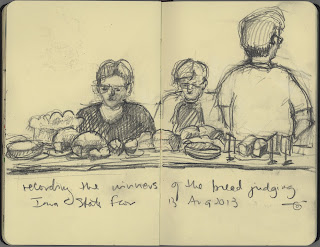 recording the winners of the bread judging
Iowa State Fair 13 Aug 2013